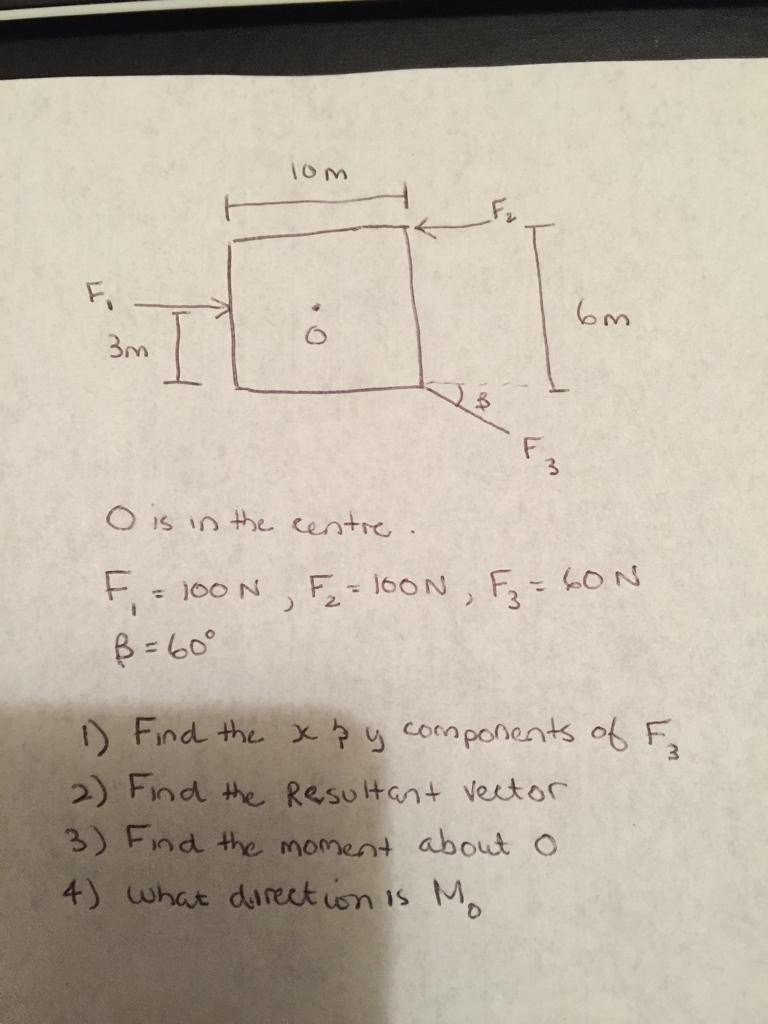 10m
F₂
F₁
6m
3m
O
β
F₃
O is in the centre.
F₁ = 100N, F₂ = 100N, F₃ = 60N
β = 60°
1) Find the x & y components of F₃
2) Find the Resultant vector
3) Find the moment about O
4) What direction is M₀